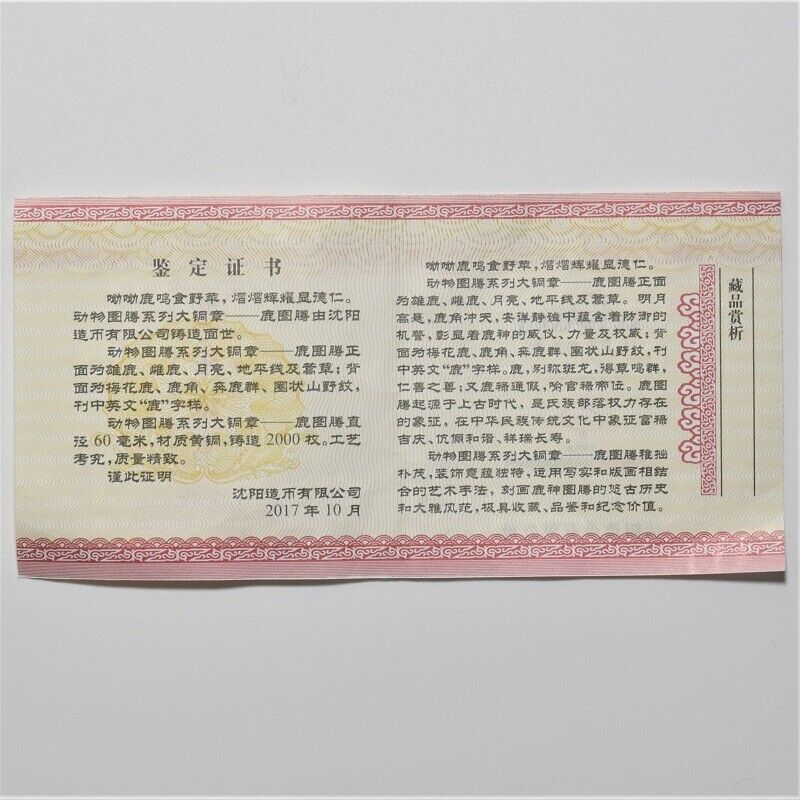 鉴定证书
呦呦鹿鸣食野苹，熠熠辉耀显德仁。
动物图腾系列大铜章——鹿图腾由沈阳
造币有限公司铸造面世。
动物图腾系列大铜章——鹿图腾正
面为雄鹿、雌鹿、月亮、地平线及蒿草；背
面为梅花鹿、鹿角、奔鹿群、圈状山野纹，
刊中英文“鹿”字样。
动物图腾系列大铜章——鹿图腾直
径60毫米，材质黄铜，铸造2000枚。工艺
考究，质量精致。
谨此证明
沈阳造币有限公司
2017年10月
呦呦鹿鸣食野苹，熠熠辉耀显德仁。
动物图腾系列大铜章——鹿图腾正面
为雄鹿、雌鹿、月亮、地平线及蒿草。明月
高悬，鹿角冲天，安详静谧中蕴含着防御的
机警，彰显着鹿神的威仪、力量及权威；背
面为梅花鹿、鹿角、奔鹿群、圈状山野纹，刊
中英文“鹿”字样。鹿，别称斑龙，得草鸣群，
仁善之兽；又鹿禄通假，喻官禄帝位。鹿图
腾起源于上古时代，是氏族部落权力存在
的象征，在中华民族传统文化中象征富禄
吉庆、伉俪和谐、祥瑞长寿。
动物图腾系列大铜章——鹿图腾稚拙
朴茂，装饰意蕴独特，运用写实和版画相结
合的艺术手法，刻画鹿神图腾的悠古历史
和大雅风范，极具收藏、品鉴和纪念价值。
藏品赏析